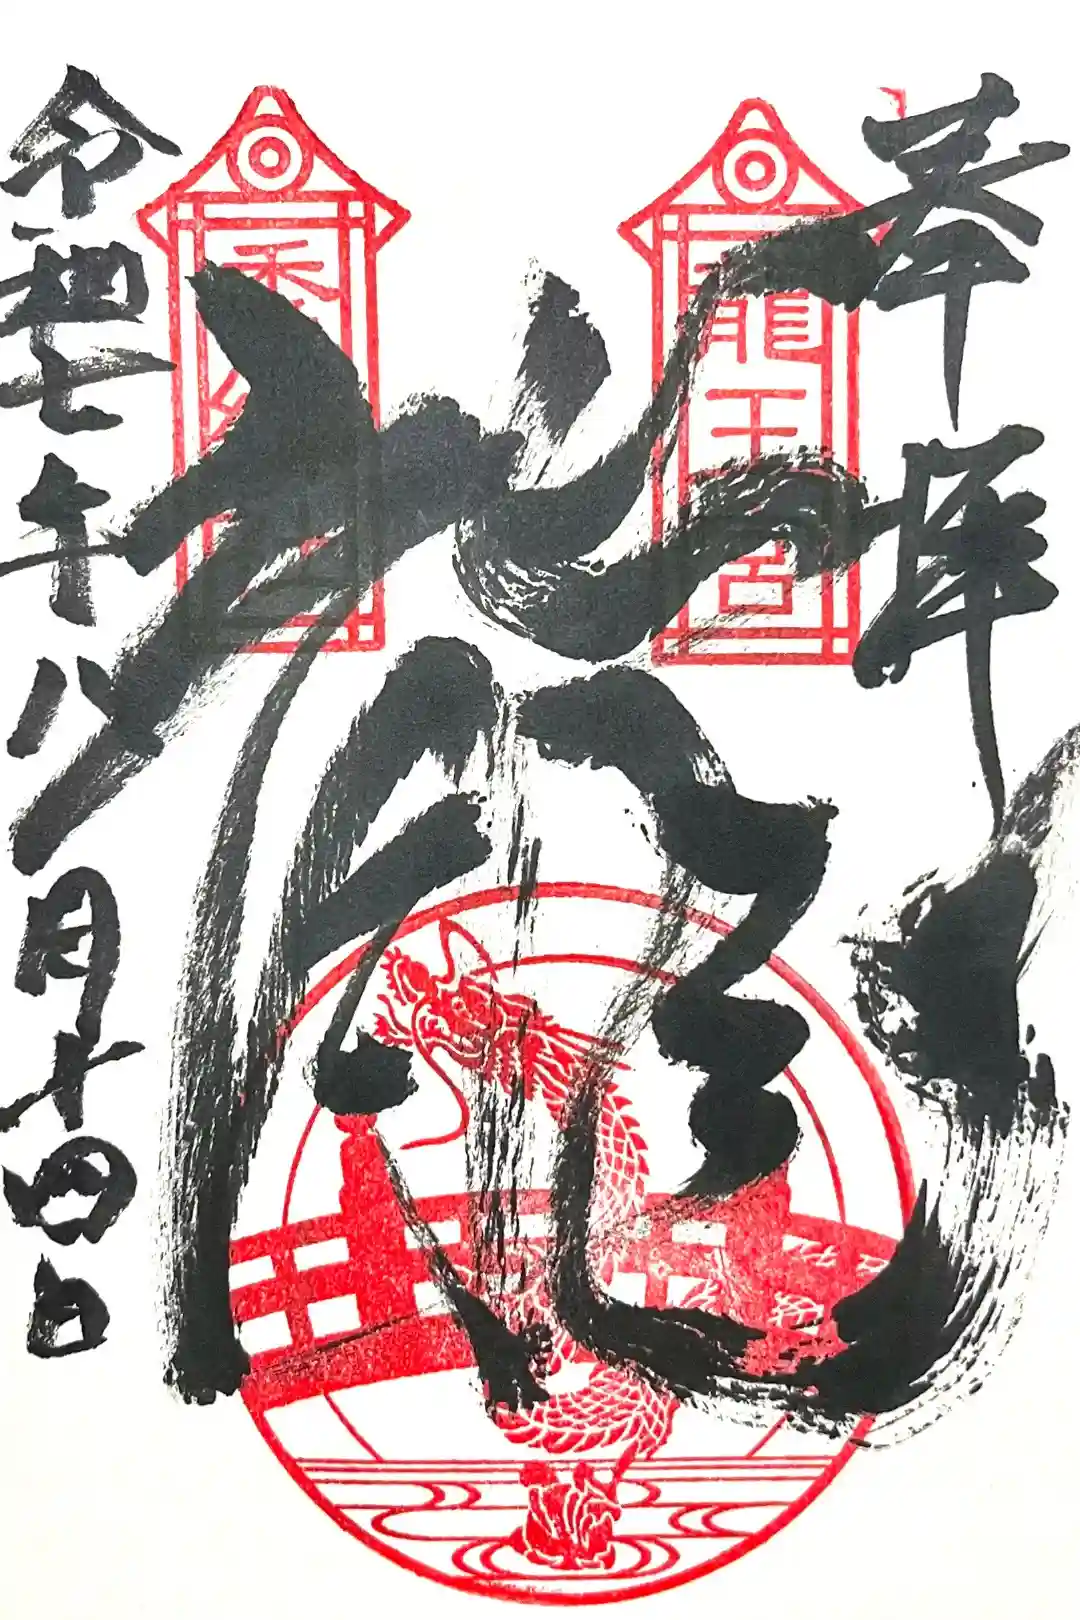 奉拝
龍王
龍
令和七年八月十四日